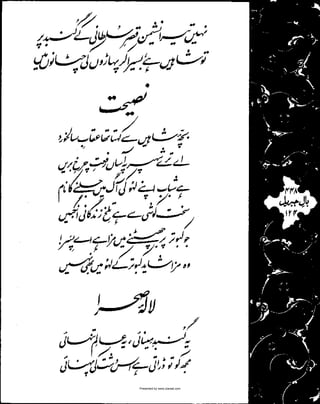 نہیں تیرا نشیمن قصرِ سلطانی کے گنبد پر
تو شاہیں ہے بسیرا کر پہاڑوں کی چٹانوں میں
نصیحت
بچۂ شاہیں سے کہتا تھا عقابِ سالخورد
اے ترے شہپر پہ آساں رفعتِ چرخِ بریں
ہے شباب اپنے لہو کی آگ میں جلنے کا نام
سخت کوشی سے ہے تلخِ زندگانی انگبیں
جو کبوتر پر جھپٹنے میں مزا ہے اے پسر!
وہ مزا شاید کبوتر کے لہو میں بھی نہیں
لالۂ صحرا
یہ گنبدِ مینائی، یہ عالمِ تنہائی
مجھ کو تو ڈراتی ہے اس دشت کی پہنائی
۴۴۸
بالِ جبریل
۱۲۴
Presented by www.ziaraat.com